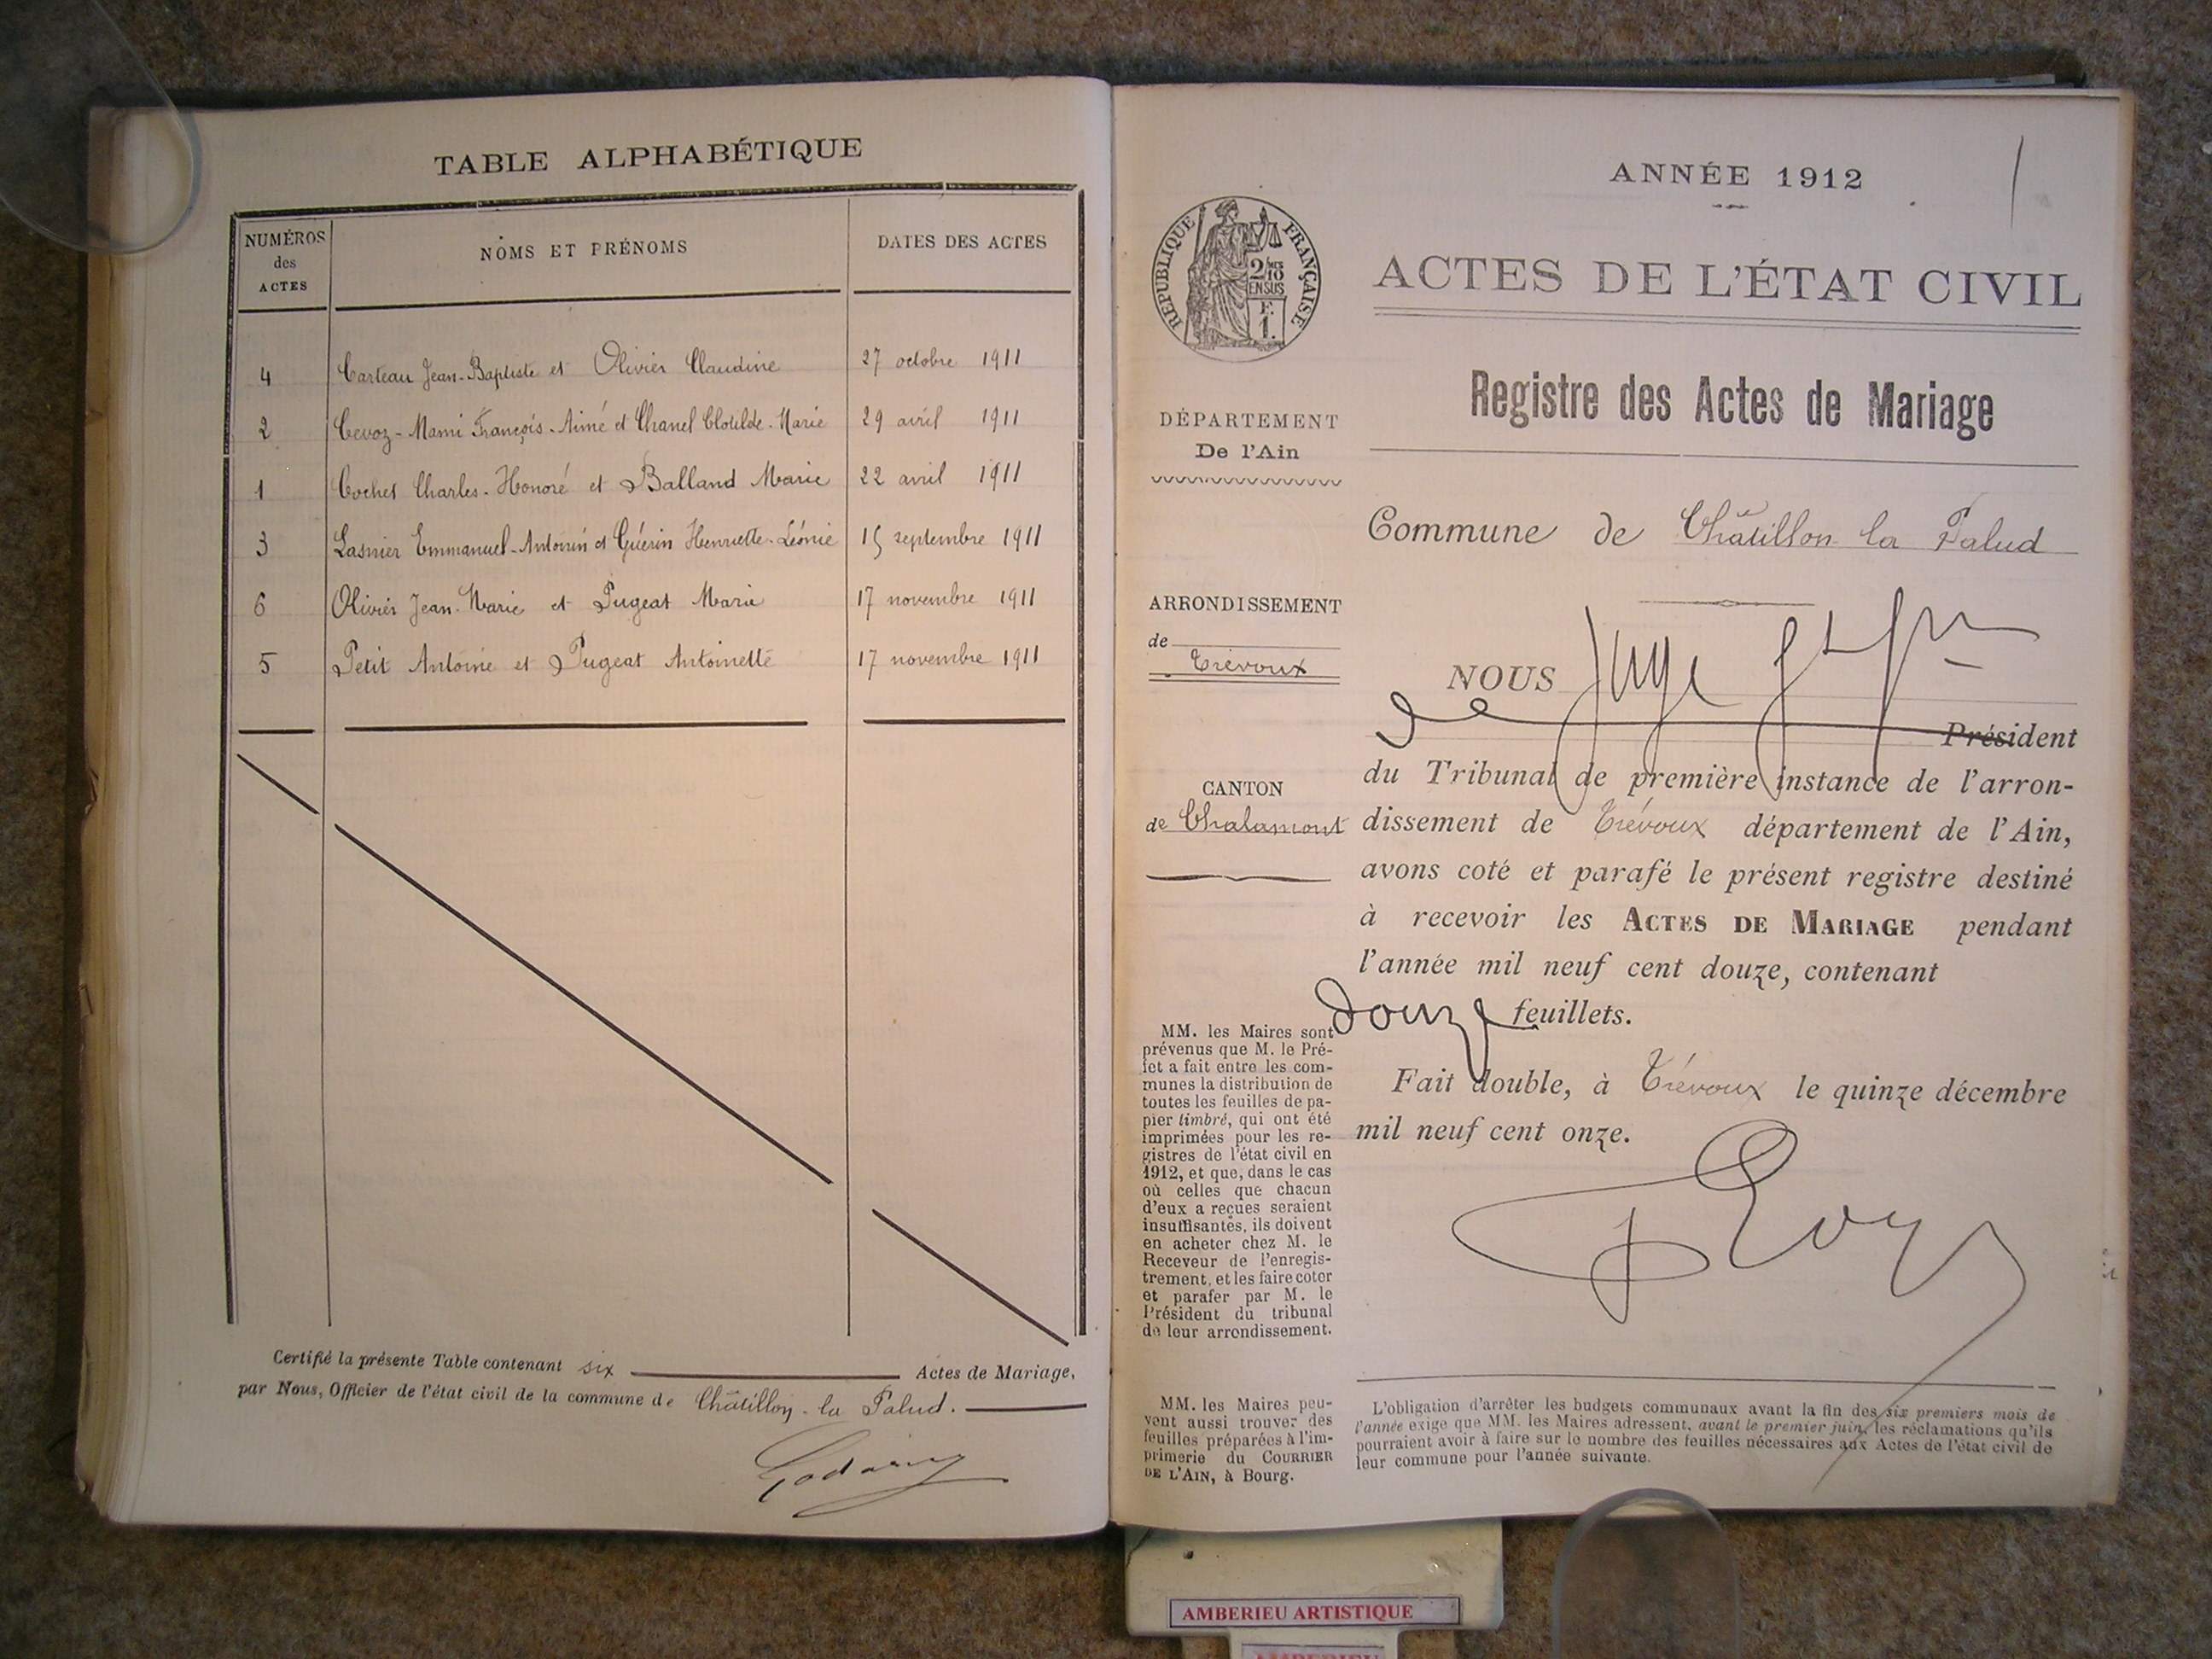 TABLE ALPHABÉTIQUE
NUMÉROS des ACTES
NOMS ET PRÉNOMS
DATES DES ACTES
4 Carteau Jean-Baptiste et Olivier Claudine 27 octobre 1911
2 Cevoz-Mami François-Aimé et Chanel Clotilde-Marie 29 avril 1911
1 Cochet Charles-Honoré et Balland Marie 22 avril 1911
3 Lasnier Emmanuel-Antonin et Guérin Henriette-Léonie 15 septembre 1911
6 Olivier Jean-Marie et Pugeat Marie 17 novembre 1911
5 Petit Antoine et Pugeat Antoinette 17 novembre 1911
Certifié la présente Table contenant six Actes de Mariage,
par Nous, Officier de l'état civil de la commune de Châtillon-la Palud.
ANNÉE 1912
1
RÉPUBLIQUE FRANÇAISE
2/10
EN SUS
F.
1.
ACTES DE L'ÉTAT CIVIL
Registre des Actes de Mariage
DÉPARTEMENT
De l'Ain
Commune de Châtillon la Palud
ARRONDISSEMENT
de
Trévoux
CANTON
de Chalamont
NOUS Juge
Président
du Tribunal de première instance de l'arron-
dissement de Trévoux département de l'Ain,
avons coté et parafé le présent registre destiné
à recevoir les ACTES DE MARIAGE pendant
l'année mil neuf cent douze, contenant
douze feuillets.
Fait double, à Trévoux le quinze décembre
mil neuf cent onze.
MM. les Maires sont
prévenus que M. le Pré-
fet a fait entre les com-
munes la distribution de
toutes les feuilles de pa-
pier timbré, qui ont été
imprimées pour les re-
gistres de l'état civil en
1912, et que, dans le cas
où celles que chacun
d'eux a reçues seraient
insuffisantes, ils doivent
en acheter chez M. le
Receveur de l'enregis-
trement, et les faire coter
et parafer par M. le
Président du tribunal
de leur arrondissement.
MM. les Maires peu-
vent aussi trouver des
feuilles préparées à l'im-
primerie du COURRIER
DE L'AIN, à Bourg.
L'obligation d'arrêter les budgets communaux avant la fin des six premiers mois de
l'année exige que MM. les Maires adressent, avant le premier juin, les réclamations qu'ils
pourraient avoir à faire sur le nombre des feuilles nécessaires aux Actes de l'état civil de
leur commune pour l'année suivante.
AMBERIEU ARTISTIQUE
AMBERIEU